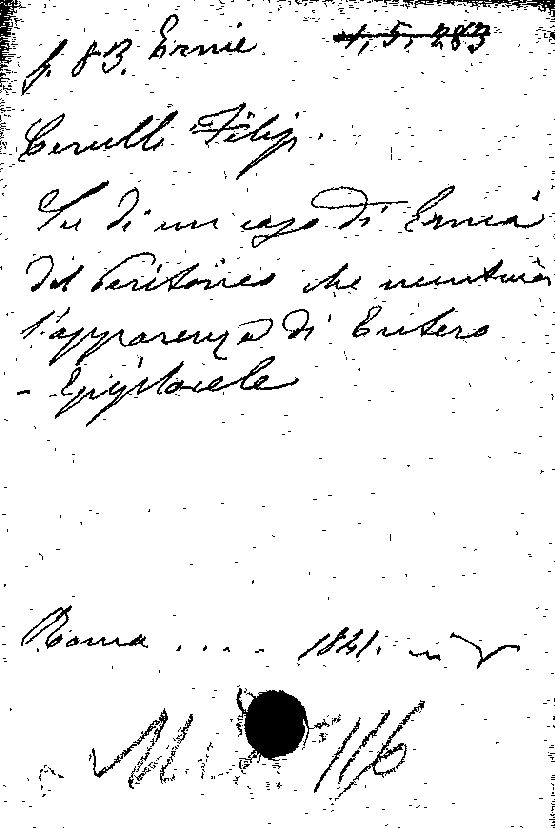 f. 83. Ernie 4, 5, 283
Cerulli Filip.
Su di un caso di Ernia
del Peritoneo che
l'apparenza di Entero
- Epiplocele
Roma .... 1821. in
116